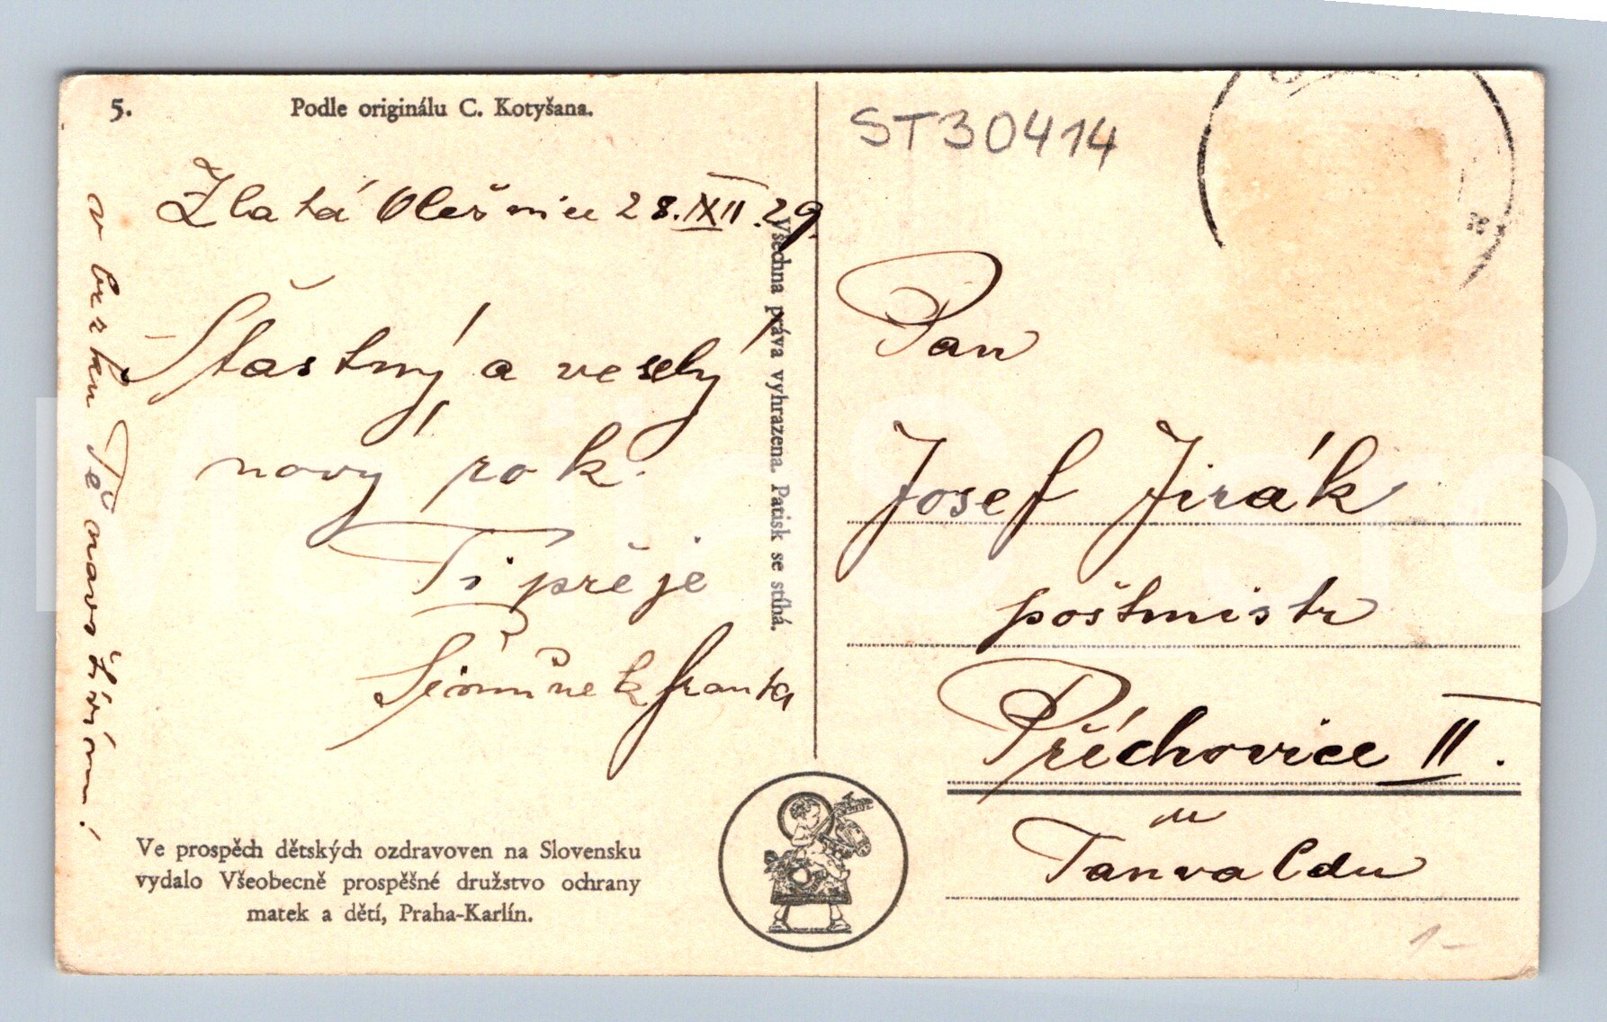 5.
Podle originálu C. Kotyšana.
ST30414
Zlatá Olešnice 28.XII.29.
Šťastný a veselý
nový rok.
Ti přeje
Šimůnek Franta
v brzku Tě navštívím!
Všechna práva vyhrazena. Patisk se stíhá.
Pan
Josef Jirák
poštmistr
Příchovice II.
u
Tanvaldu
Ve prospěch dětských ozdravoven na Slovensku
vydalo Všeobecně prospěšné družstvo ochrany
matek a dětí, Praha-Karlín.
1-